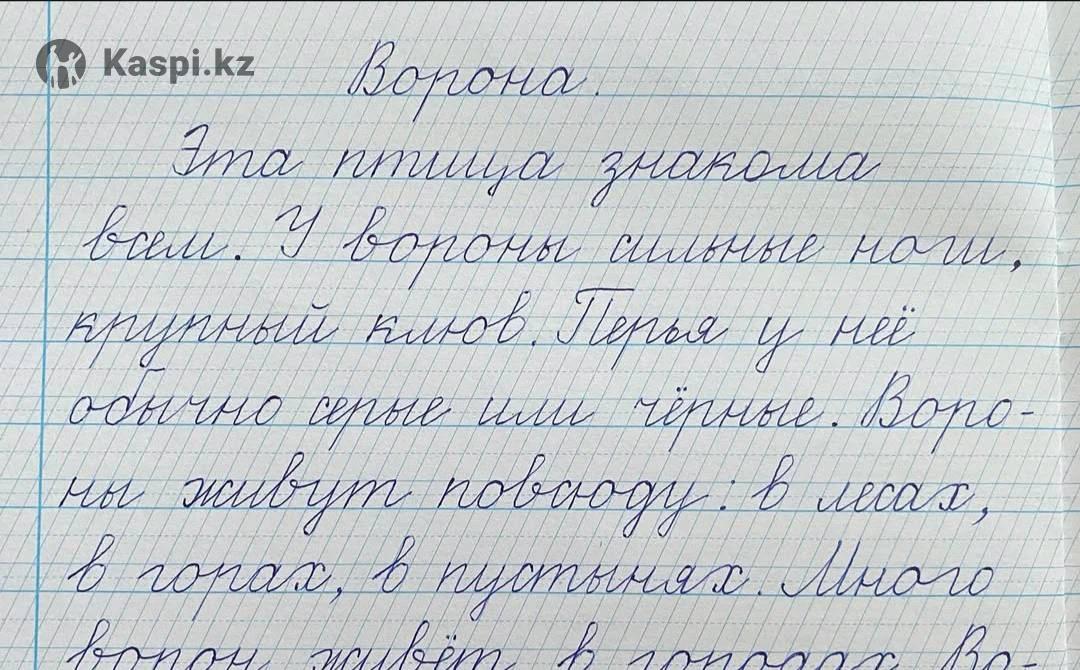 Kaspi.kz
Ворона.
Эта птица знакома
всем. У вороны сильные ноги,
крупный клюв. Перья у неё
обычно серые или чёрные. Воро-
ны живут повсюду: в лесах,
в горах, в пустынях. Много
ворон живёт в городах. Во-